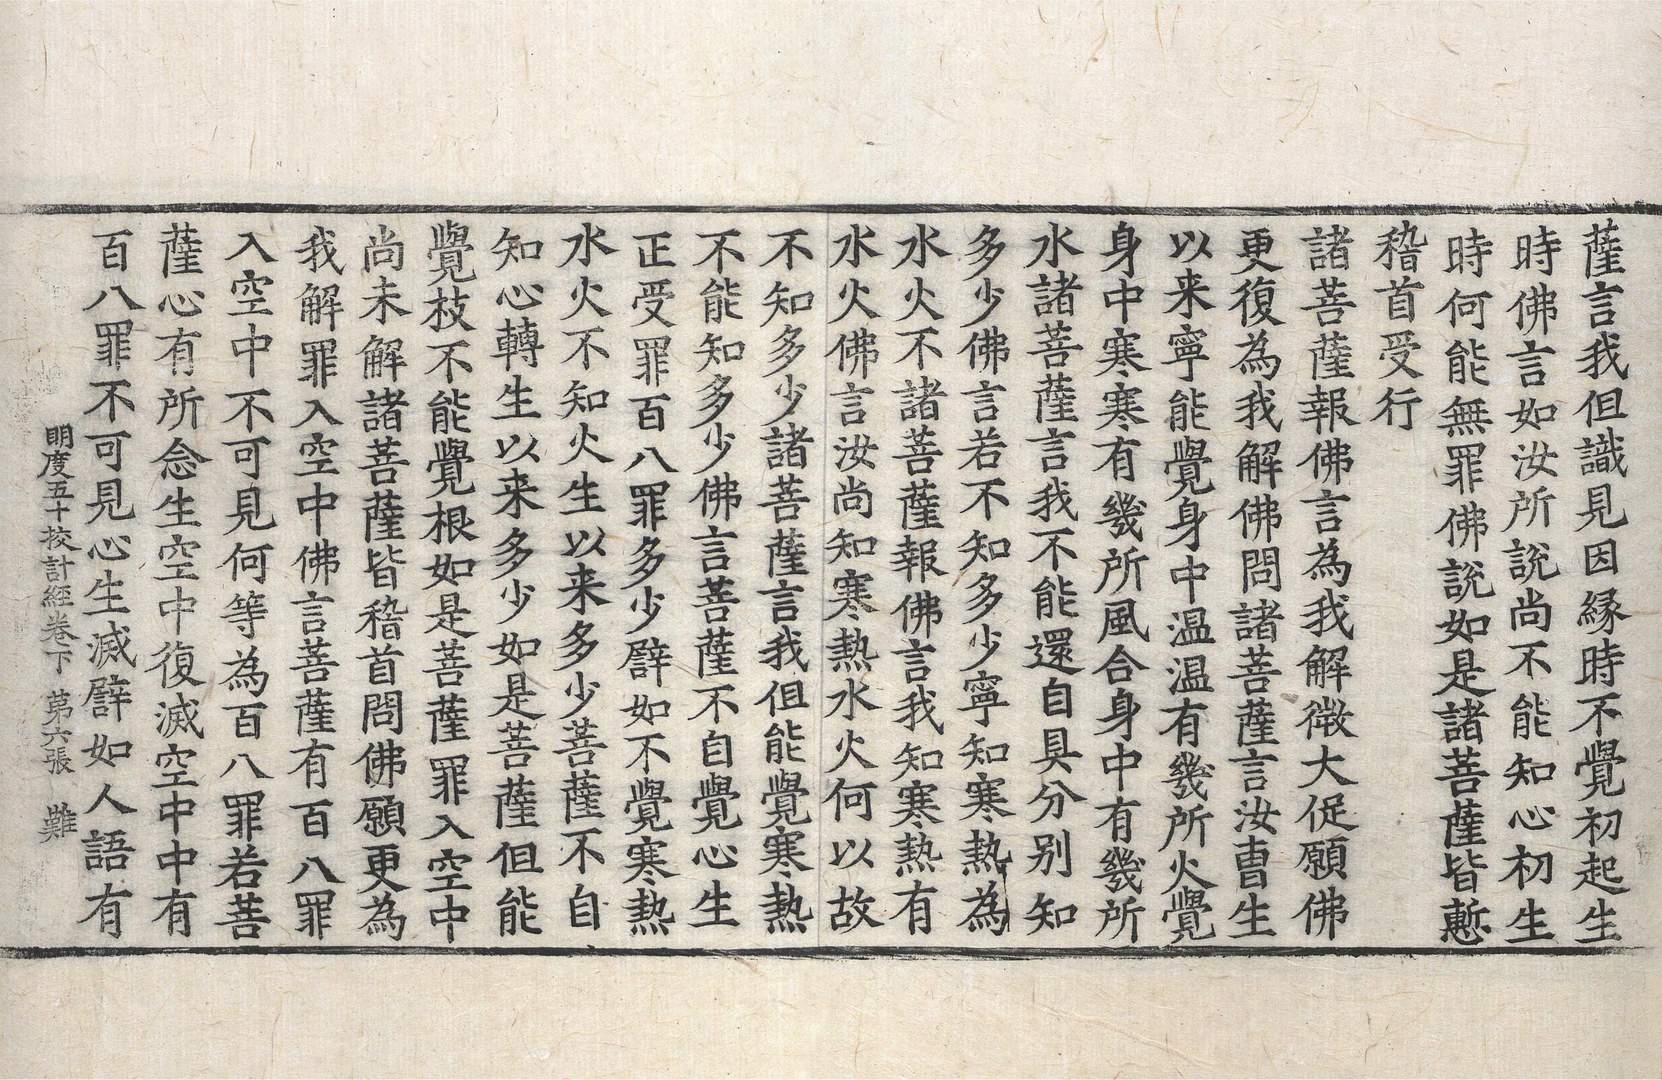 薩言我但識見因縁時不覺初起生
時佛言如汝所說尚不能知心初生
時何能無罪佛說如是諸菩薩皆慙
稽首受行
諸菩薩報佛言為我解微大促願佛
更復為我解佛問諸菩薩言汝曺生
以来寧能覺身中温温有幾所火覺
身中寒寒有幾所風合身中有幾所
水諸菩薩言我不能還自具分别知
多少佛言若不知多少寧知寒熱為
水火不諸菩薩報佛言我知寒熱有
水火佛言汝尚知寒熱水火何以故
不知多少諸菩薩言我但能覺寒熱
不能知多少佛言菩薩不自覺心生
正受罪百八罪多少譬如不覺寒熱
水火不知火生以来多少菩薩不自
知心轉生以来多少如是菩薩但能
覺枝不能覺根如是菩薩罪入空中
尚未解諸菩薩皆稽首問佛願更為
我解罪入空中佛言菩薩有百八罪
入空中不可見何等為百八罪若菩
薩心有所念生空中復滅空中中有
百八罪不可見心生滅譬如人語有
明度五十挍計經卷下 第六張 難